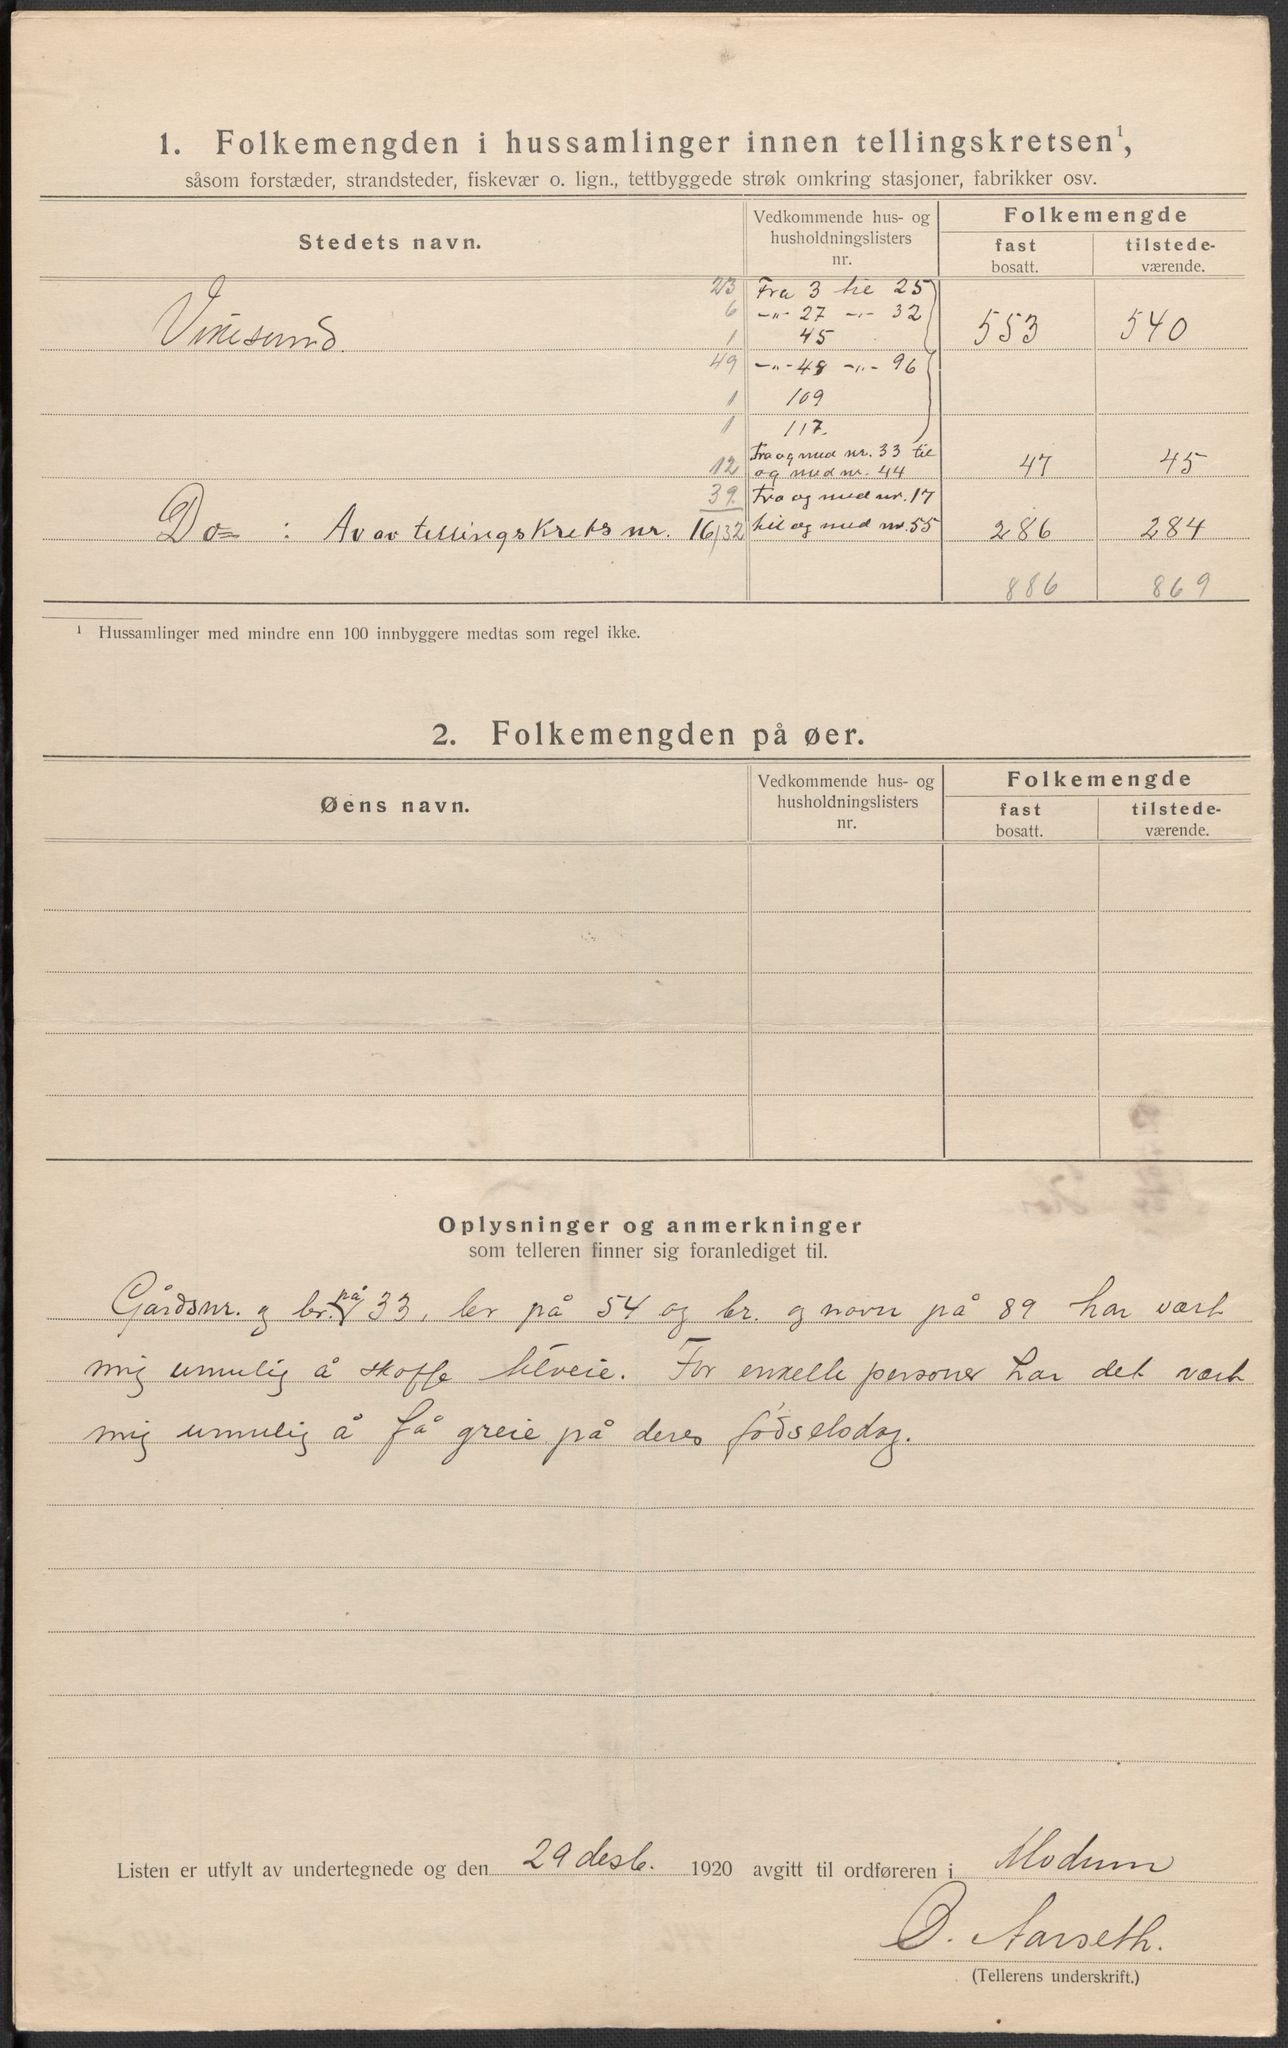 1. Folkemengden i hussamlinger innen tellingskretsen¹,
såsom forstæder, strandsteder, fiskevær o. lign., tettbyggede strøk omkring stasjoner, fabrikker osv.
Stedets navn.
Vedkommende hus- og husholdningslisters nr.
Folkemengde
fast bosatt.
tilstede-værende.
23 Fra 3 til 25
6 -"- 27 -"- 32
Vikesund 1 45 553 540
49 -"- 48 -"- 96
1 109
1 117.
Fra og med nr. 33 til
12 og med nr. 44 47 45
39 Fra og med nr. 17
Do = : Av av tellingskrets nr. 16 132 til og med nr. 55 286 284
886 869
¹ Hussamlinger med mindre enn 100 innbyggere medtas som regel ikke.
2. Folkemengden på øer.
Øens navn.
Vedkommende hus- og husholdningslisters nr.
Folkemengde
fast bosatt.
tilstede-værende.
Oplysninger og anmerkninger
som telleren finner sig foranlediget til.
Gårdsnr. g br. på 33, br på 54 og br. g navn på 89 har vært
mig umulig å skaffe tilveie. For enkelte personer har det vært
mig umulig å få greie på deres fødselsdag.
Listen er utfylt av undertegnede og den 29 desb. 1920 avgitt til ordføreren i Modum
O. Aarseth.
(Tellerens underskrift.)